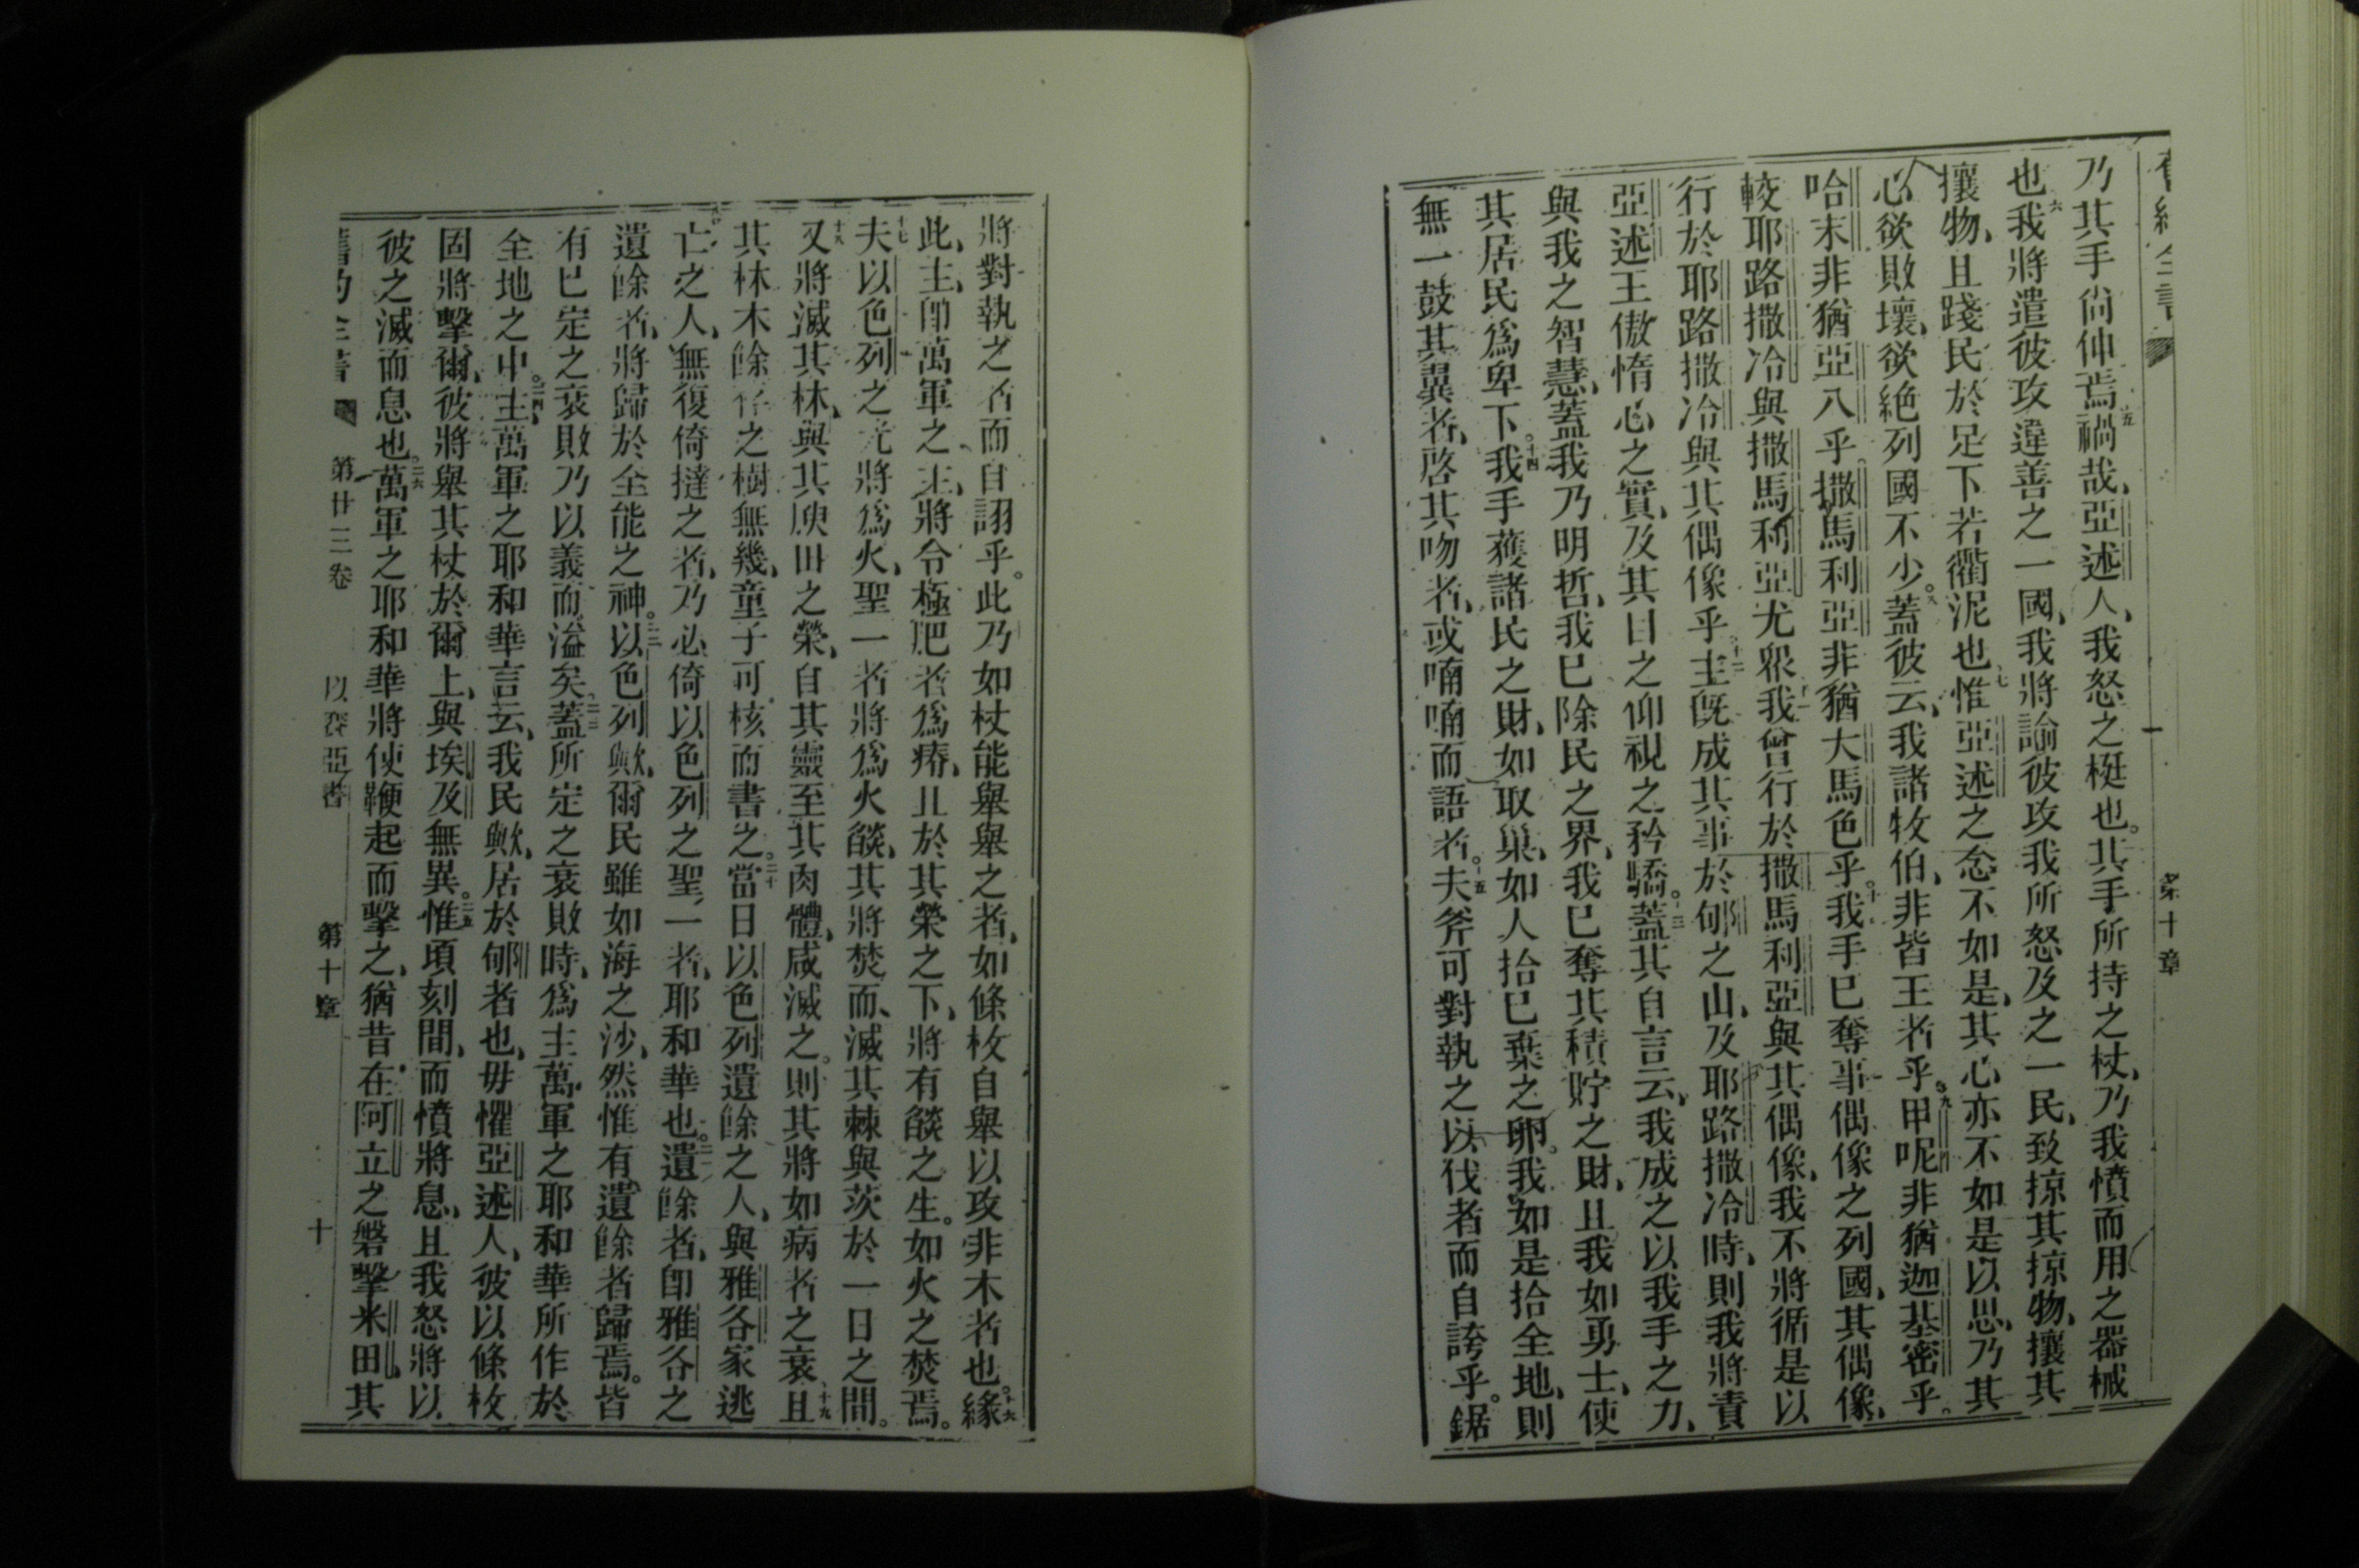 第十章
乃其手尚伸焉五禍哉、亞述人、我怒之梃也。其手所持之杖、乃我憤而用之器械
也六我將遣彼攻違善之一國、我將諭彼攻我所怒及之一民、致掠其掠物、攘其
攘物、且踐民於足下若衢泥也七惟亞述之念不如是、其心亦不如是以思、乃其
心欲敗壞、欲絕列國不少。八蓋彼云、我諸牧伯、非皆王者乎。九甲呢非猶迦基密乎。
哈末非猶亞八乎。撒馬利亞非猶大馬色乎。十我手已奪事偶像之列國、其偶像、
較耶路撒冷與撒馬利亞尤眾十一我曾行於撒馬利亞與其偶像、我不將循是以
行於耶路撒冷與其偶像乎十二主既成其事於郇之山、及耶路撒冷時、則我將責
亞述王傲惰心之實、及其目之仰視之矜驕。十三蓋其自言云、我成之以我手之力、
與我之智慧、蓋我乃明哲、我已除民之界、我已奪其積貯之財、且我如勇士、使
其居民為卑下。十四我手獲諸民之財、如取巢、如人拾已棄之卵。我如是拾全地、則
無一鼓其翼者、啓其吻者、或喃喃而語者。十五夫斧可對執之以伐者而自誇乎。鋸
將對執之者而自詡乎。此乃如杖能舉舉之者、如條枚自舉以攻非木者也。十六緣
此、主、即萬軍之主、將令極肥者為瘠、且於其榮之下、將有燄之生。如火之焚焉。
十七夫以色列之光將為火、聖一者將為火燄、其將焚而、滅其棘與茨於一日之間。
十八又將滅其林、與其腴田之榮、自其靈至其肉體、咸滅之。則其將如病者之衰十九且
其林木餘存之樹無幾、童子可核而書之。二十當日以色列遺餘之人、與雅各家逃
亡之人、無復倚撻之者、乃必倚以色列之聖一者、耶和華也。二一遺餘者、即雅各之
遺餘者、將歸於全能之神。二二以色列歟、爾民雖如海之沙、然惟有遺餘者歸焉。皆
有已定之衰敗乃以義而溢矣。二三蓋所定之衰敗時、為主萬軍之耶和華所作於
全地之中。二四主、萬軍之耶和華言云、我民歟、居於郇者也、毋懼亞述人、彼以條枚
固將擊爾、彼將舉其杖於爾上、與埃及無異。二五惟頃刻間、而憤將息、且我怒將以
彼之滅而息也。二六萬軍之耶和華將使鞭起而擊之、猶昔在阿立之磐擊米田、其
第廿三卷 以賽亞書 第十章 十